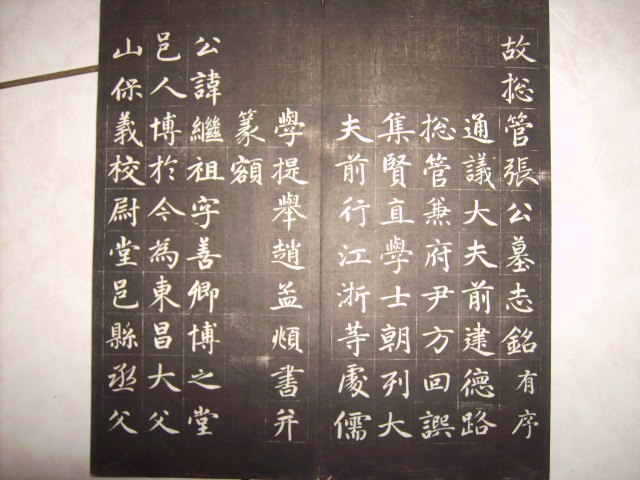 故捴管張公墓志銘有序
通議大夫前建德路
捴管兼府尹方回譔
集賢直學士朝列大
夫前行江浙等處儒
學提舉趙孟頫書并
篆額
公諱繼祖字善卿博之堂
邑人博於今為東昌大父
山保義校尉堂邑縣丞父